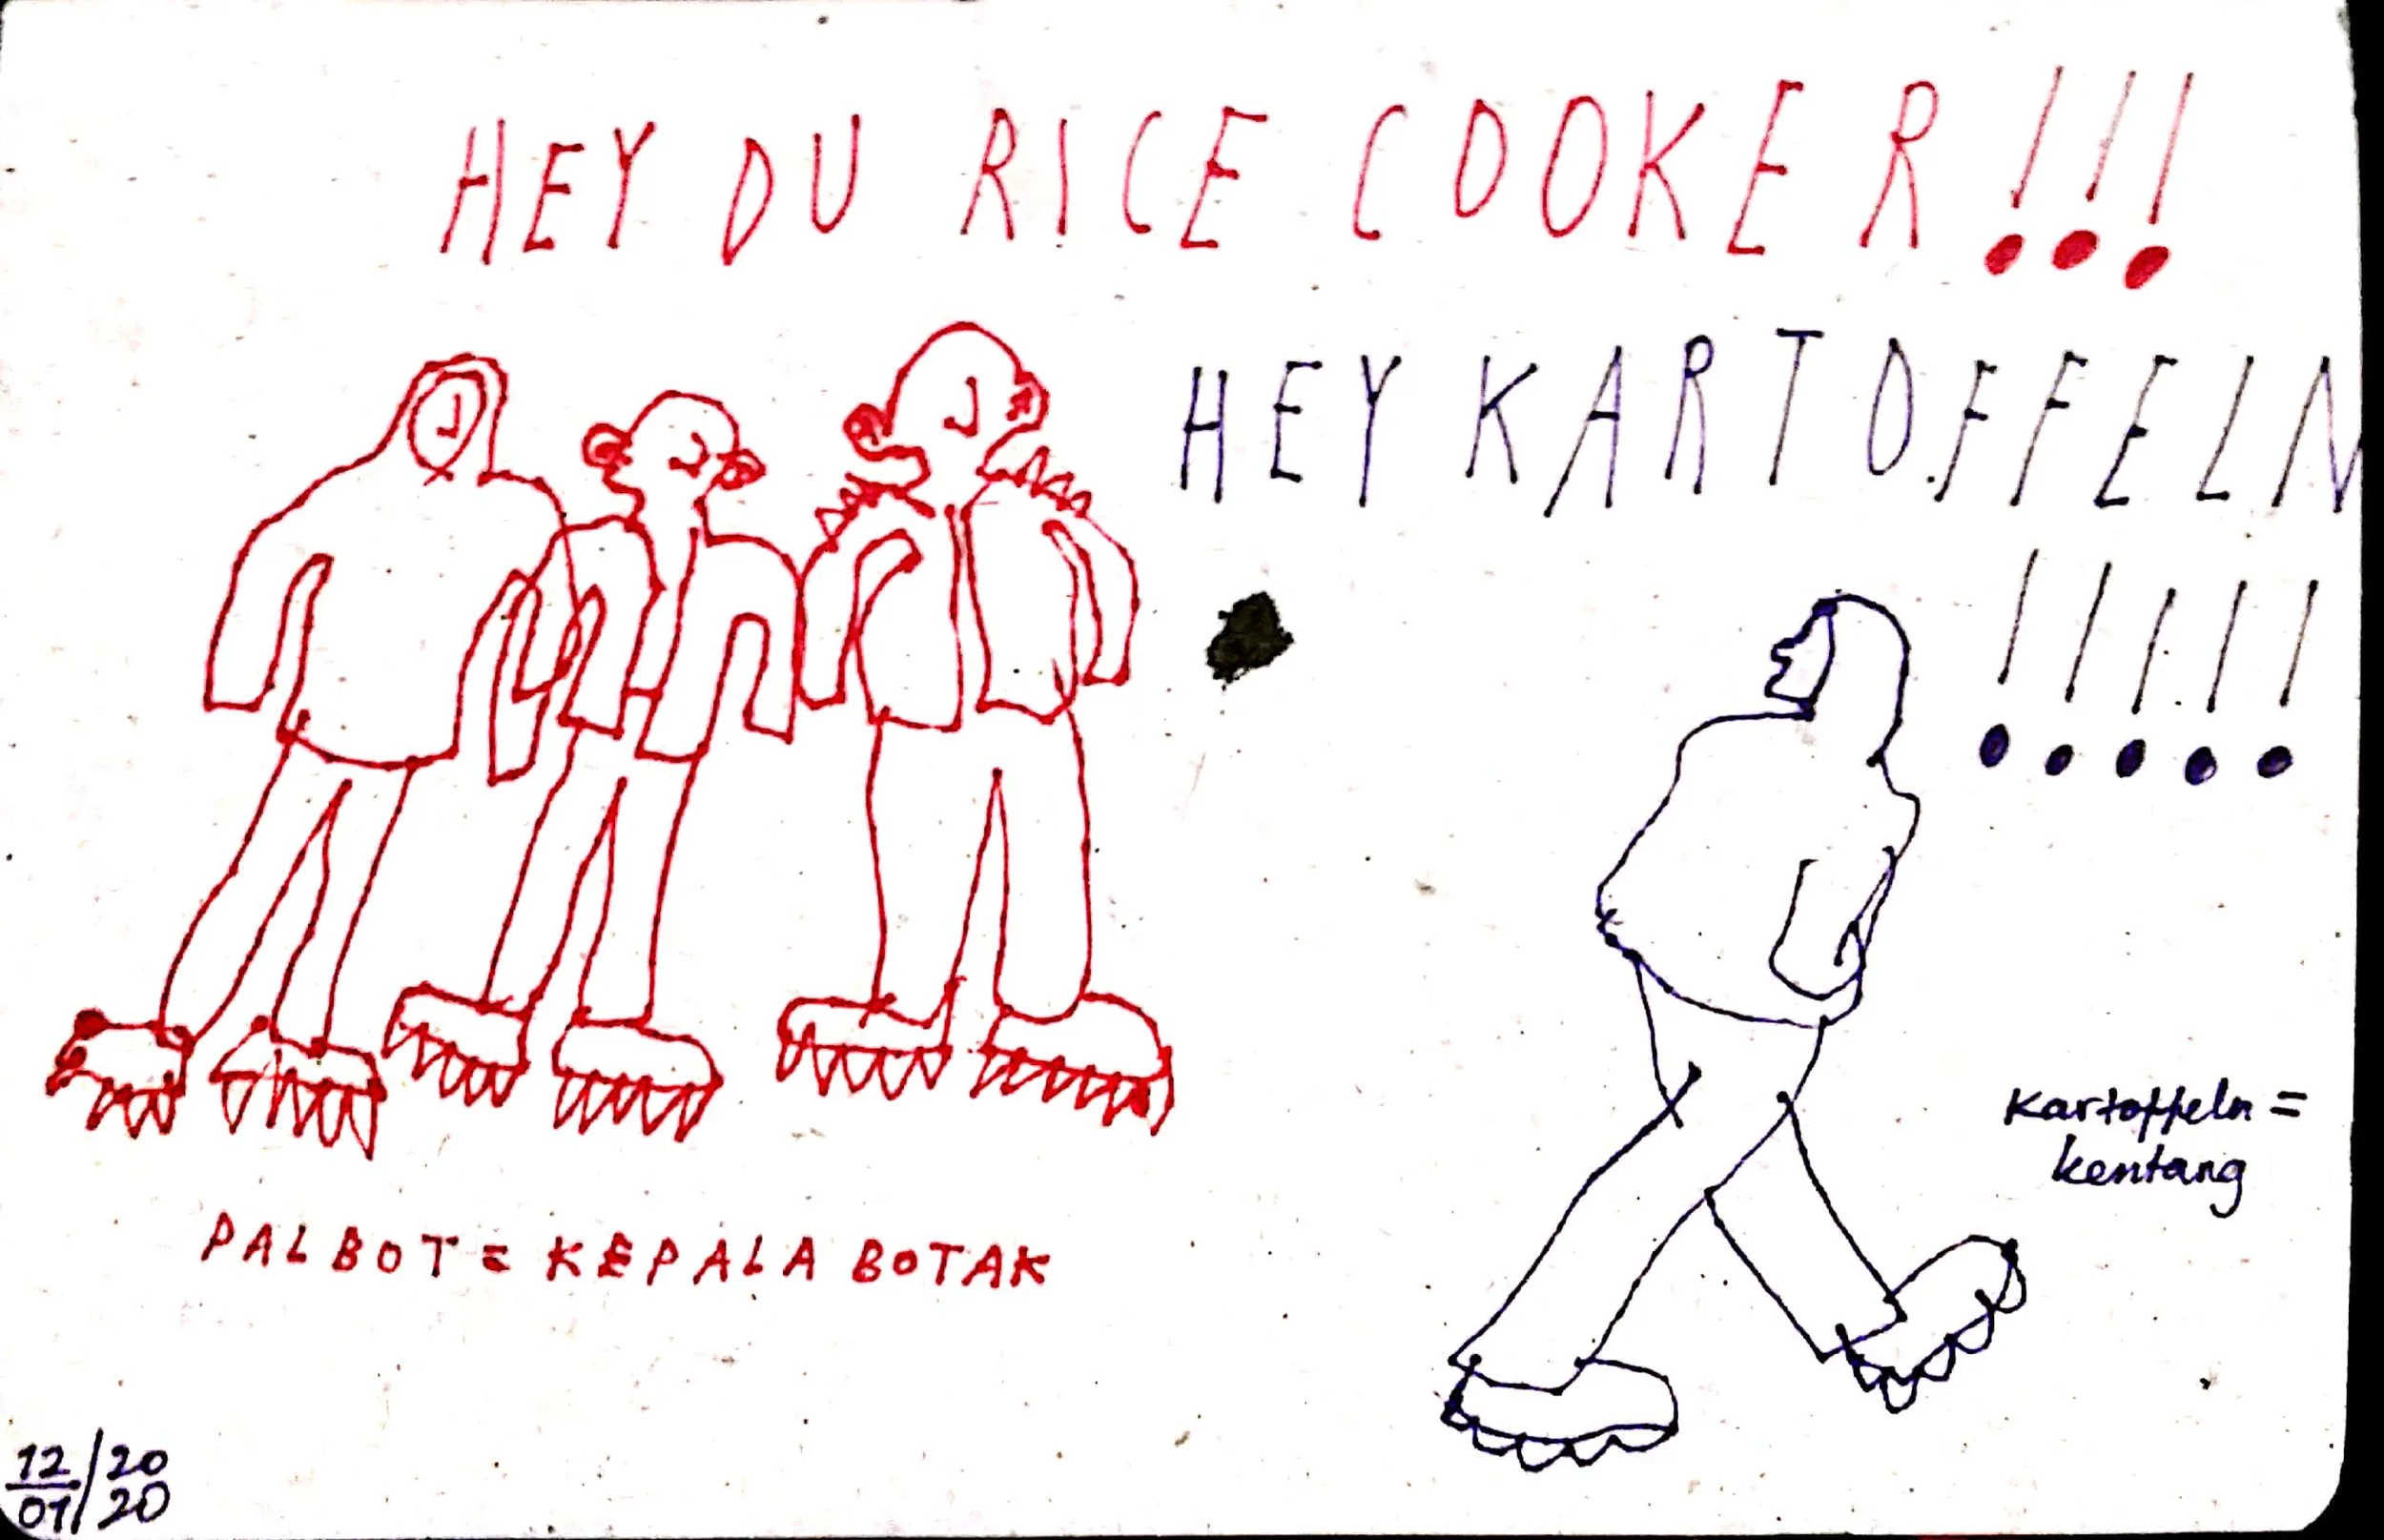 HEY DU RICE COOKER!!!
HEY KARTOFFELN
!!!!!
Kartoffeln =
kentang
PALBOT = KEPALA BOTAK
12/20
07/20